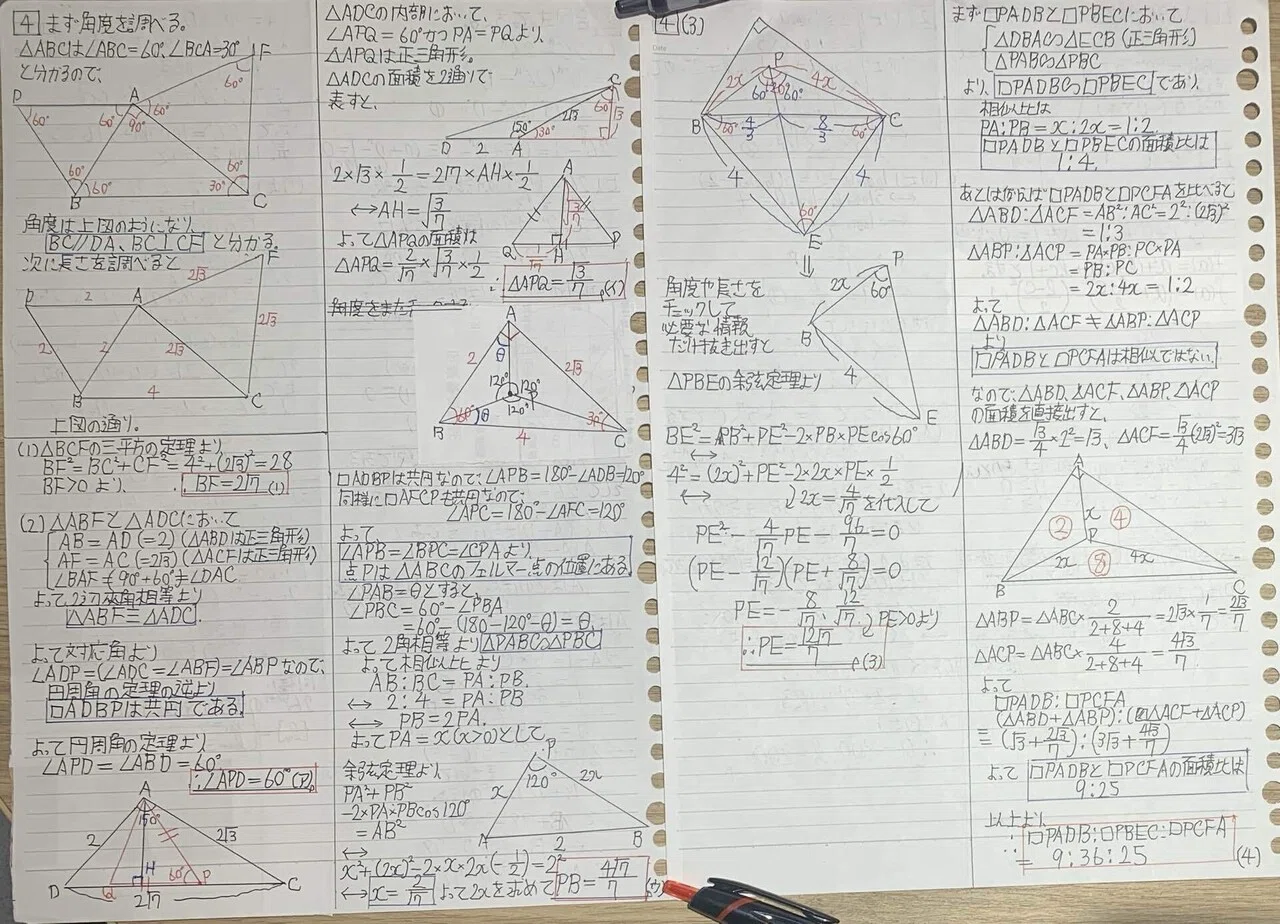 4 まず角度を調べる。
△ABCは∠ABC=60°、∠BCA=30°
と分かるので、
D 60° 60° A 60° 90° F 60° 60° 60° B 60° 30° C
角度は上図のようになり、
BC//DA、BC⊥CF と分かる。
次に長さを調べると
D 2 A 2√3 F 2 2 2√3 2√3 B 4 C
上図の通り。
(1) △BCFの三平方の定理より
BF²=BC²+CF²=4²+(2√3)²=28
BF>0 より、 ∴BF=2√7 (1)
(2) △ABFと△ADCにおいて
AB=AD(=2)(△ABDは正三角形)
AF=AC(=2√3)(△ACFは正三角形)
∠BAF=90°+60°=∠DAC
よって2辺夾角相等より
△ABF≡△ADC.
よって対応角より
∠ADP=(∠ADC=∠ABF)=∠ABPなので、
円周角の定理の逆より
□ADBPは共円である。
よって円周角の定理より
∠APD=∠ABD=60°
∴∠APD=60°(ア)
A 2 150° 2√3 H 60° D Q 2√7 P C
△ADCの内部において、
∠APQ=60°かつPA=PQより、
△APQは正三角形。
△ADCの面積を2通りで
表すと、
D 2 A 150° 30° 2√3 60° √3 C
2×√3×1/2=2√7×AH×1/2
↔AH=√3/7
よって△APQの面積は
△APQ=2/√7×√3/7×1/2
∴△APQ=√3/7 (イ)
A Q H P
A 2 θ 2√3 120° 120° 120° P B 60° θ 4 30° C
□ADBPは共円なので∠APB=180°-∠ADB=120°
同様に□AFCPも共円なので、
∠APC=180°-∠AFC=120°
よって
∠APB=∠BPC=∠CPAより、
点Pは△ABCのフェルマー点の位置にある
∠PAB=θとすると、
∠PBC=60°-∠PBA
=60°-(180°-120°-θ)=θ、
よって2角相等より△PAB∽△PBC
よって相似比より
AB:BC=PA:PB.
↔ 2:4=PA:PB
↔ PB=2PA.
よってPA=x(x>0)として、
余弦定理より、
PA²+PB²
-2×PA×PBcos120°
=AB²
↔
P 120° x 2x A 2 B
x²+(2x)²-2×x×2x(-1/2)=2²
↔x=2/√7 よって2xを求めて PB=4√7/7 (ウ)
4 (3)
P 2x 4x 60° 60° B 60° 4/3 8/3 60° C 4 4 60° E
⇓
角度や長さを
チェックして
必要な情報
だけ抜き出すと
P 2x 60° B 4 E
△PBEの余弦定理より
BE²=PB²+PE²-2×PB×PEcos60°
↔
4²=(2x)²+PE²-2×2x×PE×1/2
↔ 2x=4/√7を代入して
PE²-4/√7PE-96/7=0
(PE-12/√7)(PE+8/√7)=0
PE=-8/√7、12/√7 PE>0より
∴PE=12√7/7 (3)
まず□PADBと□PBECにおいて
△DBA∽△ECB(正三角形)
△PAB∽△PBC
より、□PADB∽□PBECであり
相似比は
PA:PB=x:2x=1:2.
□PADBと□PBECの面積比は
1:4.
あとは例えば□PADBと□PCFAを比べると
△ABD:△ACF=AB²:AC²=2²:(2√3)²
=1:3
△ABP:△ACP=PA×PB:PC×PA
=PB:PC
=2x:4x=1:2
よって
△ABD:△ACF≠△ABP:△ACP
より
□PADBと□PCFAは相似ではない。
なので△ABD、△ACF、△ABP、△ACP
の面積を直接出すと、
△ABD=√3/4×2²=√3、△ACF=√3/4(2√3)²=3√3
A x ② ④ P 2x ⑧ 4x B C
△ABP=△ABC×2/2+8+4=2√3×1/7=2√3/7
△ACP=△ABC×4/2+8+4=4√3/7
よって
□PADB:□PCFA
(△ABD+△ABP):(△ACF+△ACP)
=(√3+2√3/7):(3√3+4√3/7)
よって □PADBと□PCFAの面積比は
9:25
以上より
∴□PADB:□PBEC:□PCFA
=9:36:25 (4)